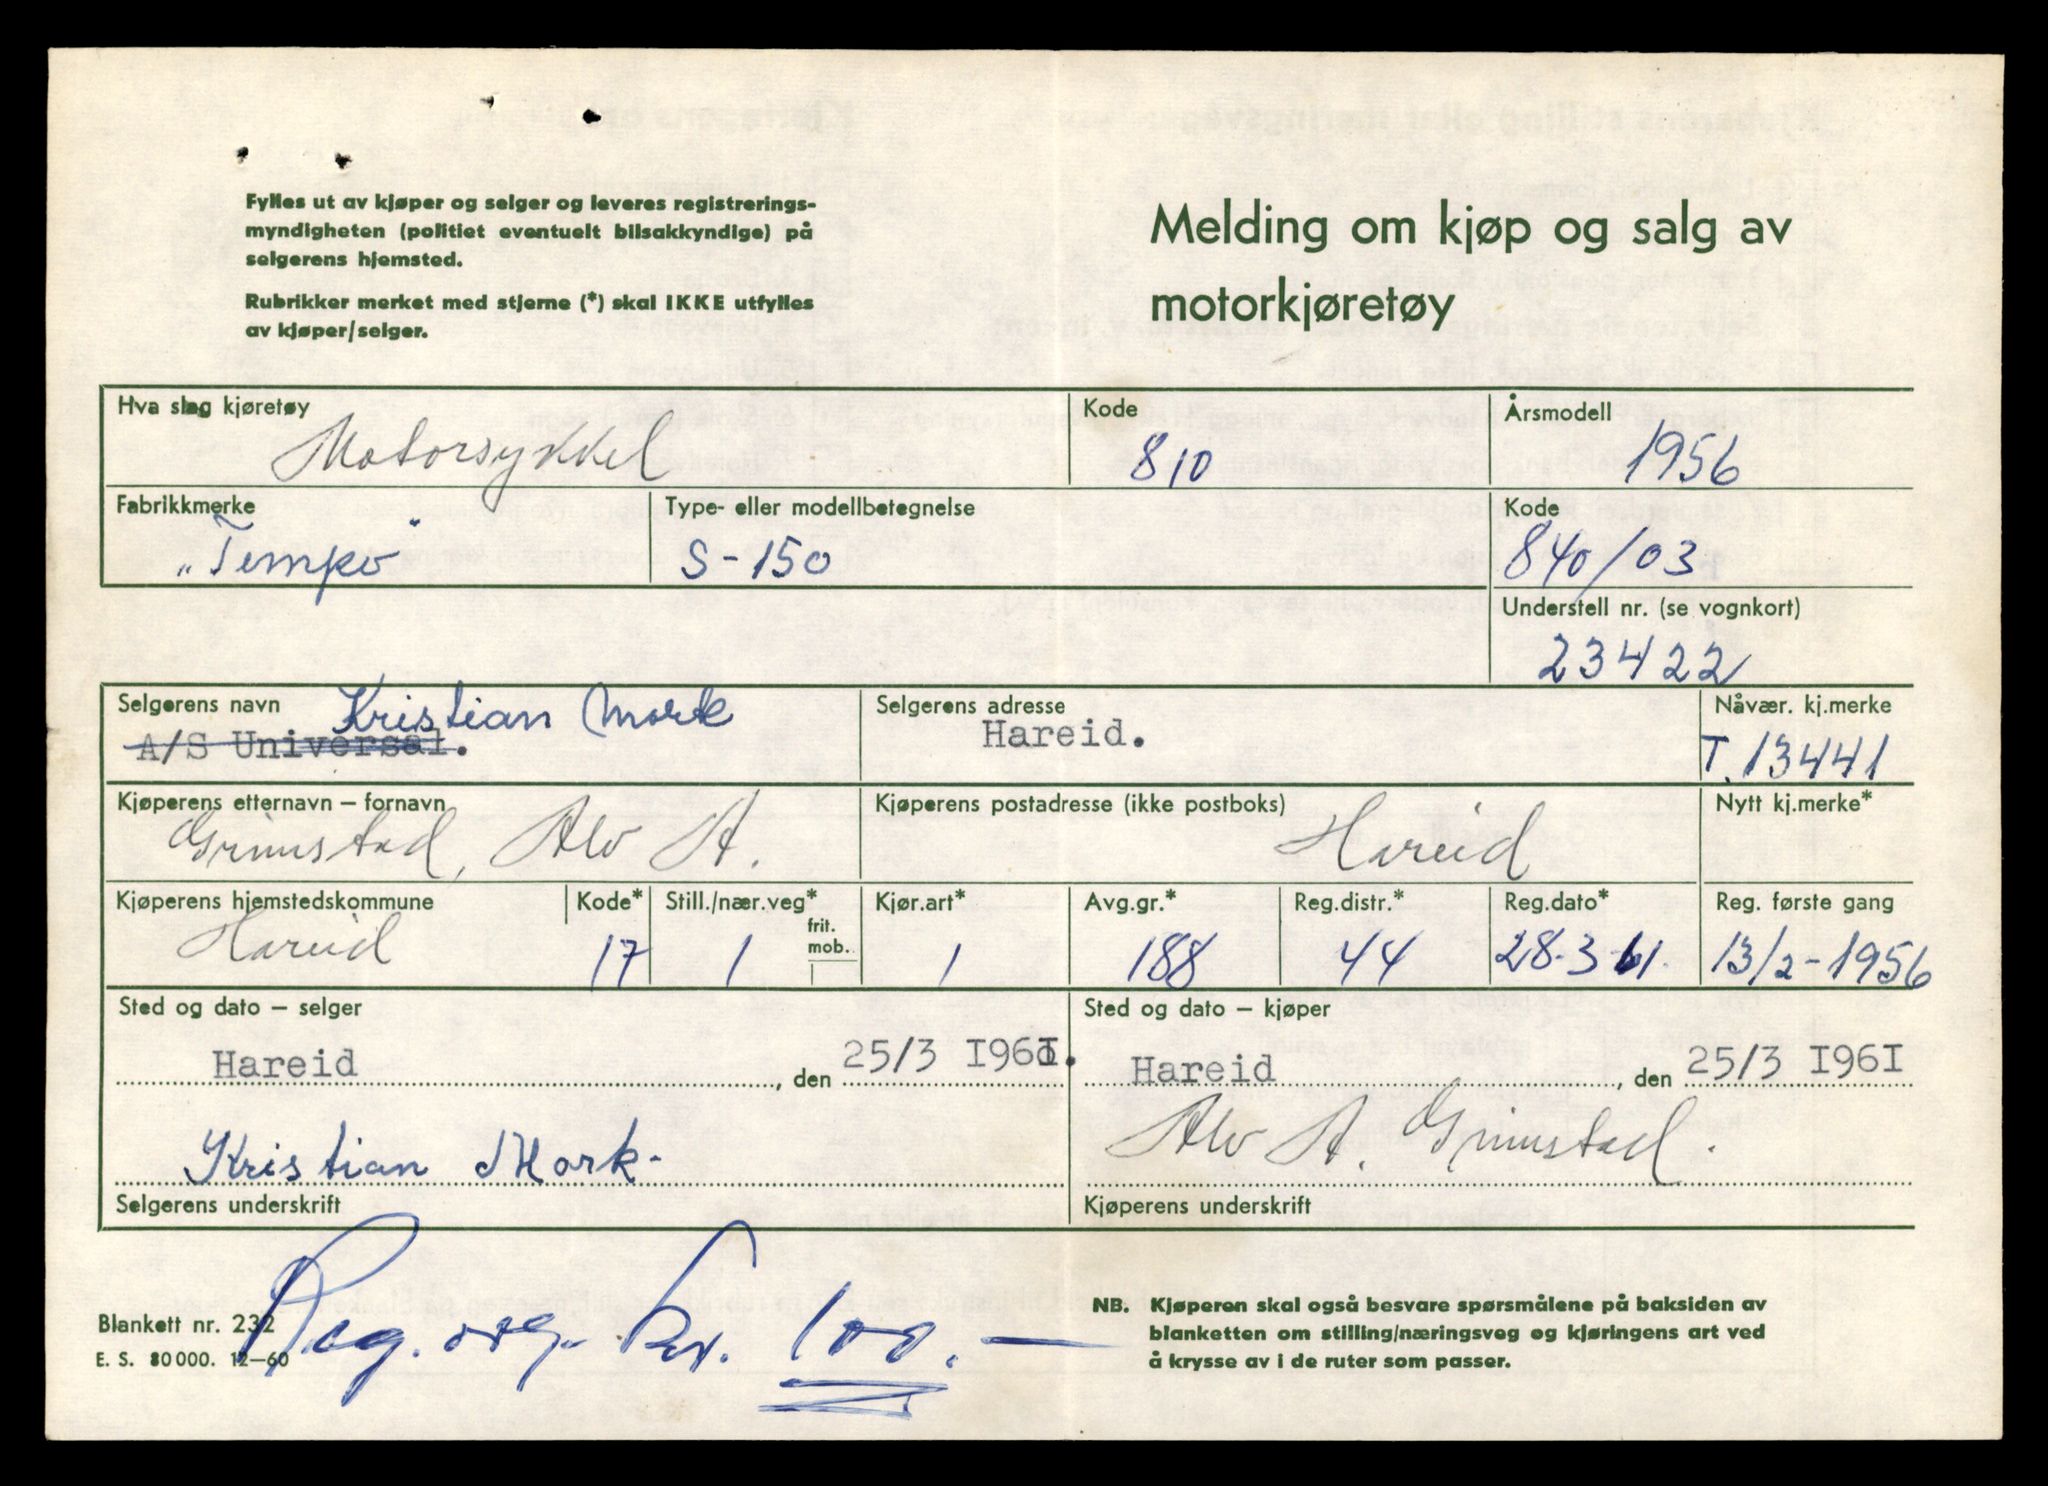 Fylles ut av kjøper og selger og leveres registrerings-
myndigheten (politiet eventuelt bilsakkyndige) på
selgerens hjemsted.
Rubrikker merket med stjerne (*) skal IKKE utfylles
av kjøper/selger.
Melding om kjøp og salg av
motorkjøretøy
Hva slag kjøretøy
Motorsykkel
Kode
810
Årsmodell
1956
Fabrikkmerke
„Tempo"
Type- eller modellbetegnelse
S-150
Kode
840/03
Understell nr. (se vognkort)
23422
Selgerens navn
Kristian Mork
A/S Universal.
Selgerens adresse
Hareid.
Nåvær. kj.merke
T.13441
Kjøperens etternavn – fornavn
Grimstad, Alv A.
Kjøperens postadresse (ikke postboks)
Hareid
Nytt kj.merke*
Kjøperens hjemstedskommune
Hareid
Kode*
17
Still./nær.veg*
1
frit.
mob.
Kjør.art*
1
Avg.gr.*
188
Reg.distr.*
44
Reg.dato*
28.3 61.
Reg. første gang
13/2-1956
Sted og dato – selger
Hareid, den 25/3 I96I.
Sted og dato – kjøper
Hareid, den 25/3 I96I
Kristian Mork-
Selgerens underskrift
Alv A. Grimstad.
Kjøperens underskrift
Reg. avg. kr. 100.—
Blankett nr. 232
E. S. 80000. 12–60
NB. Kjøperen skal også besvare spørsmålene på baksiden av
blanketten om stilling/næringsveg og kjøringens art ved
å krysse av i de ruter som passer.